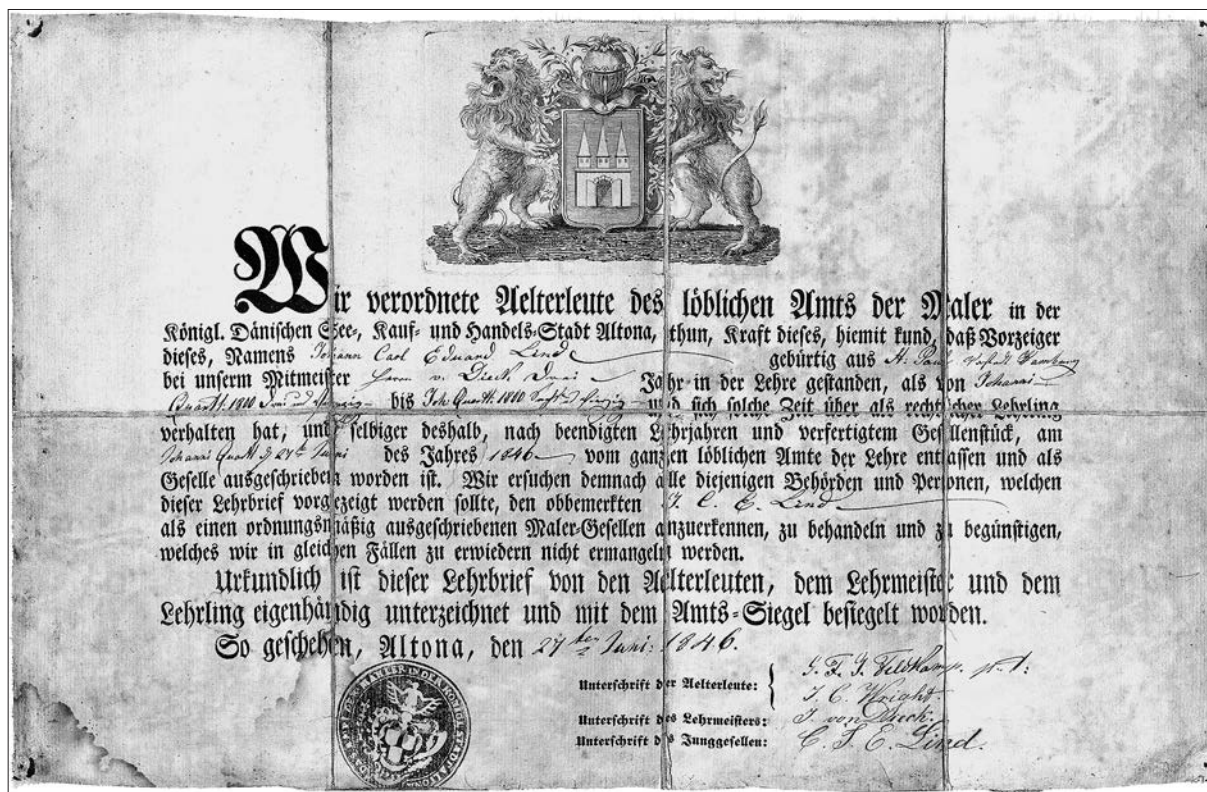 Wir verordnete Aelterleute des löblichen Amts der Maler in der
Königl. Dänischen See-, Kauf- und Handels-Stadt Altona, thun, Kraft dieses, hiemit kund, daß Vorzeiger
dieses, Namens Johann Carl Eduard Lind gebürtig aus St. Pauli Vorstadt Hamburg
bei unserm Mitmeister Herrn v. Dieck Drei Jahr in der Lehre gestanden, als von Johanni
Quartl. 1840 Drei und bis Joh. Quartl. 1840 und sich solche Zeit über als rechtlicher Lehrling
verhalten hat, und selbiger deshalb, nach beendigten Lehrjahren und verfertigtem Gesellenstück, am
Johanni Quartl. 27ten Juni des Jahres 1846 vom ganzen löblichen Amte der Lehre entlassen und als
Geselle ausgeschrieben worden ist. Wir ersuchen demnach alle diejenigen Behörden und Personen, welchen
dieser Lehrbrief vorgezeigt werden sollte, den obbemerkten J. C. E. Lind
als einen ordnungsmäßig ausgeschriebenen Maler-Gesellen anzuerkennen, zu behandeln und zu begünstigen,
welches wir in gleichen Fällen zu erwiedern nicht ermangeln werden.
Urkundlich ist dieser Lehrbrief von den Aelterleuten, dem Lehrmeister und dem
Lehrling eigenhändig unterzeichnet und mit dem Amts-Siegel besiegelt worden.
So geschehen, Altona, den 27ten Juni: 1846.
Unterschrift der Aelterleute: J. F. J. Feldkamp. p. t:
J. C. Wright.
Unterschrift des Lehrmeisters: J. von Dieck.
Unterschrift des Junggesellen: C. J. E. Lind.